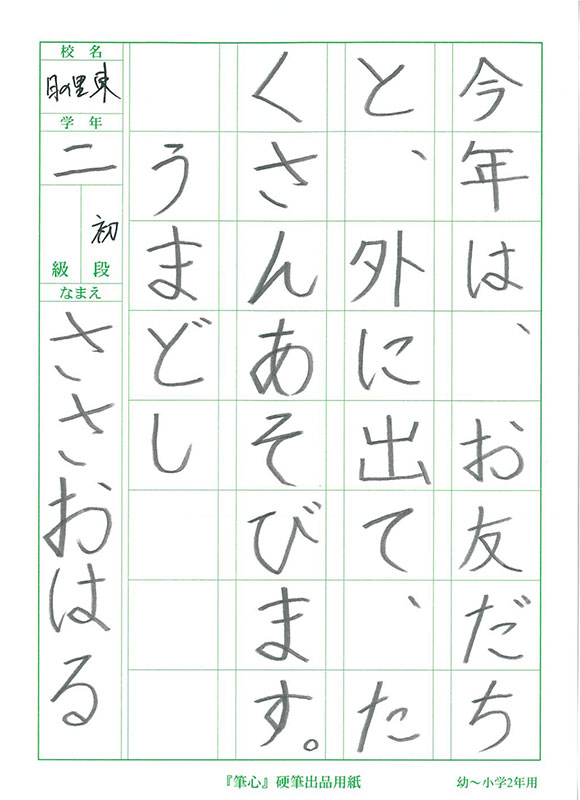 今年は、お友だち
と、外に出て、た
くさんあそびます。
うまどし
校名
日の里東
学年
二
初段
級
なまえ
ささおはる
『筆心』硬筆出品用紙
幼～小学2年用